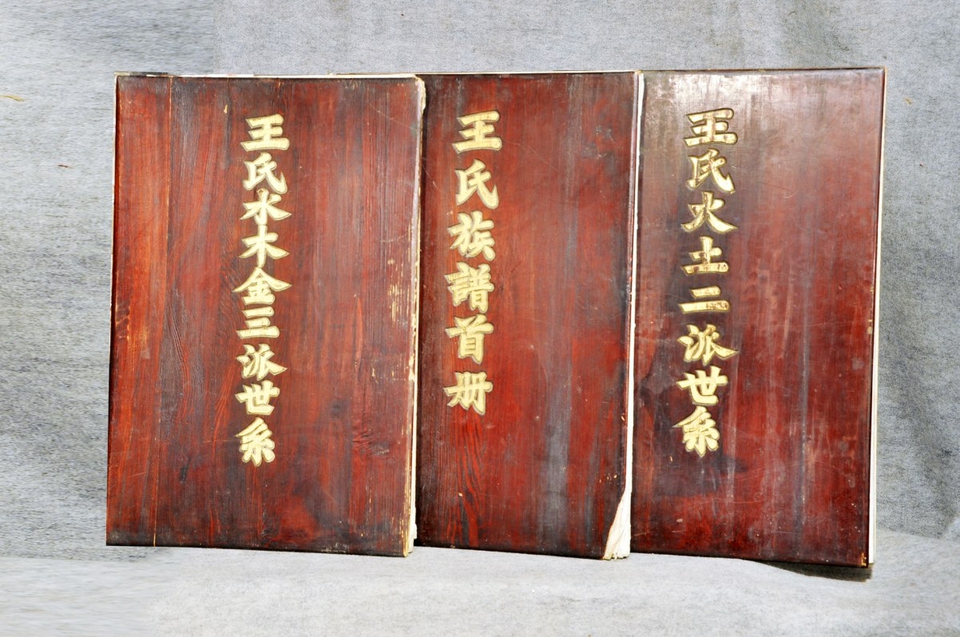 王氏水木金三派世系
王氏族譜首册
王氏火土二派世系